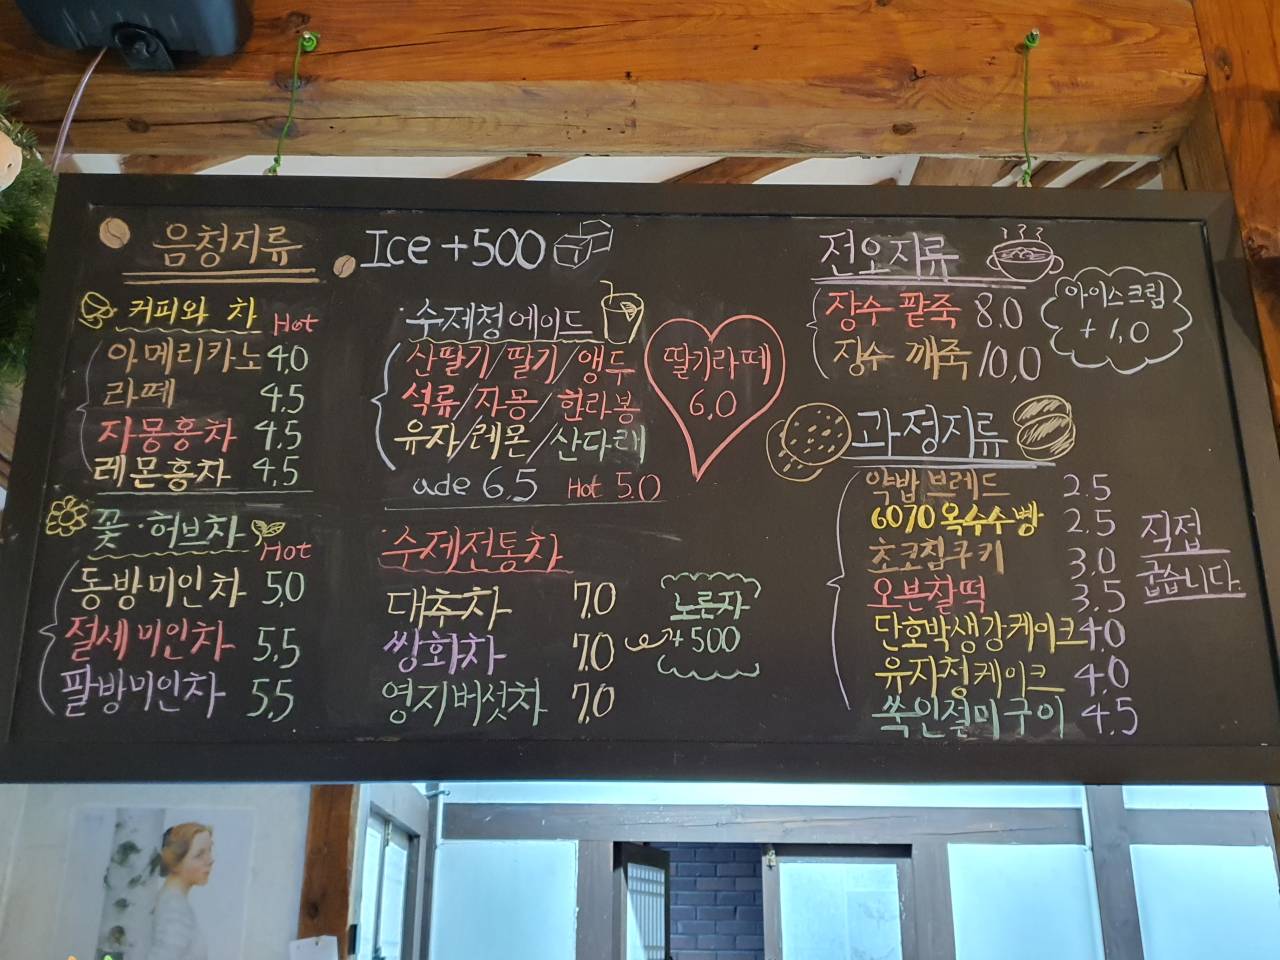 음청지류
Ice +500
커피와 차 Hot
아메리카노 4.0
라떼 4.5
자몽홍차 4.5
레몬홍차 4.5
꽃·허브차 Hot
동방미인차 5.0
절세미인차 5.5
팔방미인차 5.5
수제청에이드
산딸기/딸기/앵두
석류/자몽/한라봉
유자/레몬/산다래
ade 6.5 Hot 5.0
딸기라떼
6.0
수제전통차
대추차 7.0
쌍화차 7.0
영지버섯차 7.0
노른자
+500
전오지류
장수 팥죽 8.0
장수 깨죽 10.0
아이스크림
+1.0
과정지류
약밥 브레드 2.5
6070옥수수빵 2.5
초코칩쿠키 3.0
오븐찰떡 3.5
단호박생강케이크 4.0
유자청케이크 4.0
쑥인절미구이 4.5
직접
굽습니다.